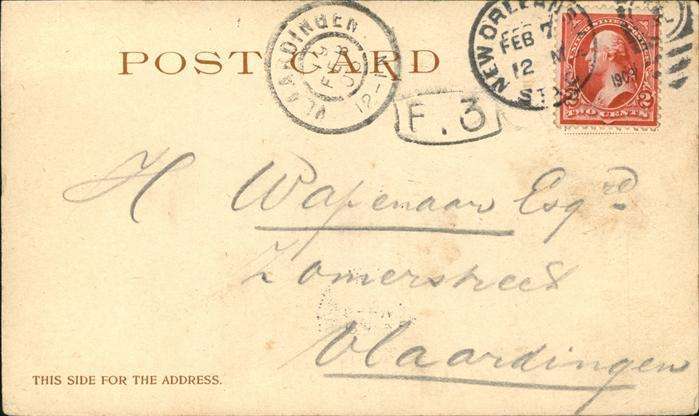 POST CARD
VLAARDINGEN
12-1
F. 3
NEW ORLEANS
FEB 7
12 M
STA
1903
TWO CENTS
2 2
H Wapenaar Esqrd
Zomerstreet
Vlaardingen
THIS SIDE FOR THE ADDRESS.